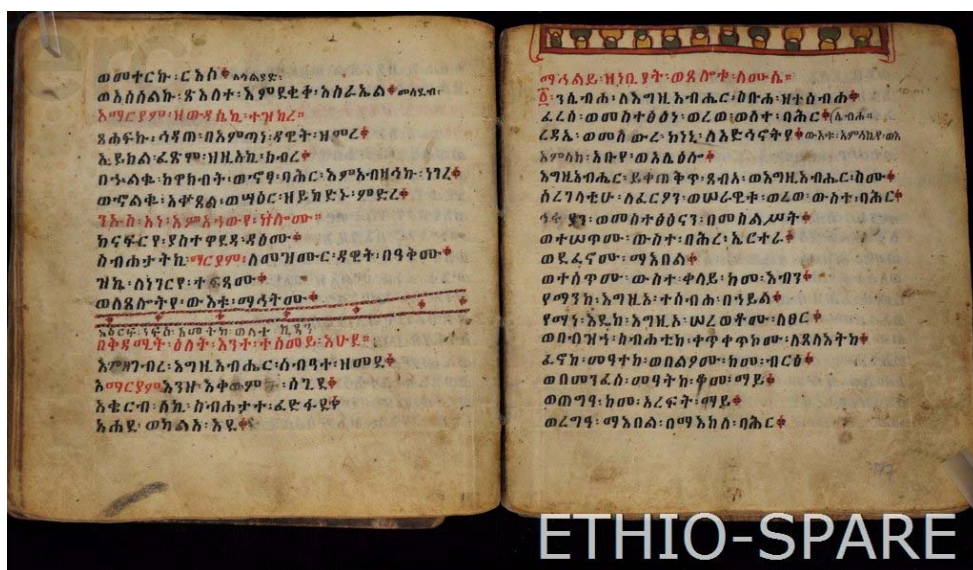 ወመተርኩ፡ ርእሰ
ወአሰሰልኩ፡ ጽእለተ፡ እምደቂቀ፡ እስራኤል።
ኦማርያም፡ ዘውዳሴኪ፡ ተዝካረ።
ጸሐፍኩ፡ ኅዳጠ፡ በአምጣነ፡ ዳዊት፡ ዘምረ።
ኢይክል፡ ፈጽሞ፡ ዝዜአኪ፡ ክብረ።
በኍልቈ፡ ከዋክብት፡ ወኆፃ፡ ባሕር፡ እምአብዛኅኩ፡ ነገረ።
ወኆልቈ፡ አቍጽል፡ ወሣዕር፡ ዘይከድኖ፡ ምድረ።
ንኡስ፡ አነ፡ እምአኀውየ፡
ከናፍርየ፡ ያስተዋድዳ፡ ዳዕሙ።
ስብሐታትኪ፡ ማርያም፡ ለመዝሙር፡ ዳዊት፡ በዓቅሙ።
ዝኬ፡ ለነገርየ፡ ተፍጻሙ።
ወለጸሎትየ፡ ውእቱ፡ ማኅትሙ።
አዕርፍ፡ ነፍሰ፡ አመትከ፡ ወለተ፡ ኪዳን
በቅዳሚት፡ ዕለት፡ እንተ፡ ተሰመይ፡ አሁደ።
እምዘገብረ፡ እግዚአብሔር፡ ሰብዓተ፡ ዘመደ።
ኦማርያም፡ እንዘ፡ እቀውም፡ ሰጊደ።
እቄርብ፡ ለኪ፡ ስብሐታተ፡ ፈድፋደ።
አሐደ፡ ወክልኤ፡ እደ።
ማኅልይ፡ ዘነቢያት፡ ወጸሎቱ፡ ለሙሴ።
፩፡ ንሴብሖ፡ ለእግዚአብሔር፡ ስቡሐ፡ ዘተሰብሐ።
ፈረሰ፡ ወመስተፅዕነ፡ ወረወ፡ ውስተ፡ ባሕር።
ረዳኤ፡ ወመሰውረ፡ ኮነኒ፡ ለአድኅኖትየ። ውእቱ፡ አምላኪየ፡ ወእ
አምላከ፡ አቡየ፡ ወአሌዕሎ።
እግዚአብሔር፡ ይቀጠቅጥ፡ ጸብአ፡ ወእግዚአብሔር፡ ስሙ።
ሰረገላቲሁ፡ ለፈርዖን፡ ወሠራዊቶ፡ ወረወ፡ ውስተ፡ ባሕር።
ኅሩያን፡ ወመስተፅዕናን፡ በመስልሥት።
ወተሠጥሙ፡ ውስተ፡ ባሕረ፡ ኤርትራ።
ወደፈኖሙ፡ ማእበል።
ወተሰጥሙ፡ ውስተ፡ ቀላይ፡ ከመ፡ እብን።
የማንከ፡ እግዚኦ፡ ተሰብሐ፡ በኃይል።
የማነ፡ እዴከ፡ እግዚኦ፡ ሠረወቶሙ፡ ለፀር።
ወበብዝኀ፡ ስብሐቲከ፡ ቀጥቀጥኮሙ፡ ለጸላእትከ።
ፈኖከ፡ መዓተከ፡ ወበልዖሙ፡ ከመ፡ ብርዕ።
ወበመንፈሰ፡ መዓትከ፡ ቆመ፡ ማይ።
ወጠግዓ፡ ከመ፡ አረፍት፡ ማይ።
ወረግዓ፡ ማእበል፡ በማእከለ፡ ባሕር።
ETHIO-SPARE